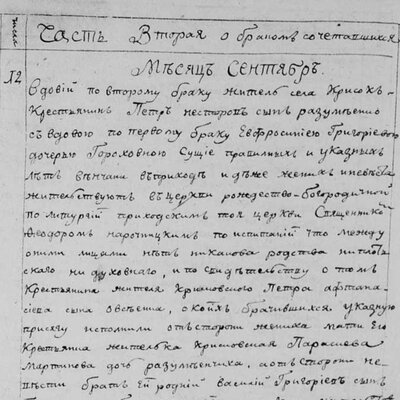 число
Часть Вторая о браком сочетавшихся
Мѣсяцъ Сентябрь.
12 вдовій по второму браку житель села Крисокъ
Крестьянин Петръ несторовъ сынъ разумѣнко
съ вдовою по первому браку Евфросиніею Григоріевою
дочерью Гороховною сущіе правилныхъ и указныхъ
лѣтъ вѣнчани въ приход и дѣже жених и невѣста
жителствуютъ в церкви рождество-богородичной
по литургій приходскимъ тоя церкви Священнико
Феодором нарочицкимъ по испитаній что между
оними лицами нѣтъ никакова родства ни плот
скаго ни духовнаго, и по свидѣтельству о томъ
Крестьянина жителя Крисковского Петра афтана
сіева сына овсѣнка, о коихъ брачившихся указную
присягу исполнили отъ стороны жениха мати Его
Крестьянка жителька Крисковская Параскева
Мартинова дочь разумѣнчиха, а отъ стороны не
вѣсти братъ Ей родній василій Григоріевъ сынъ